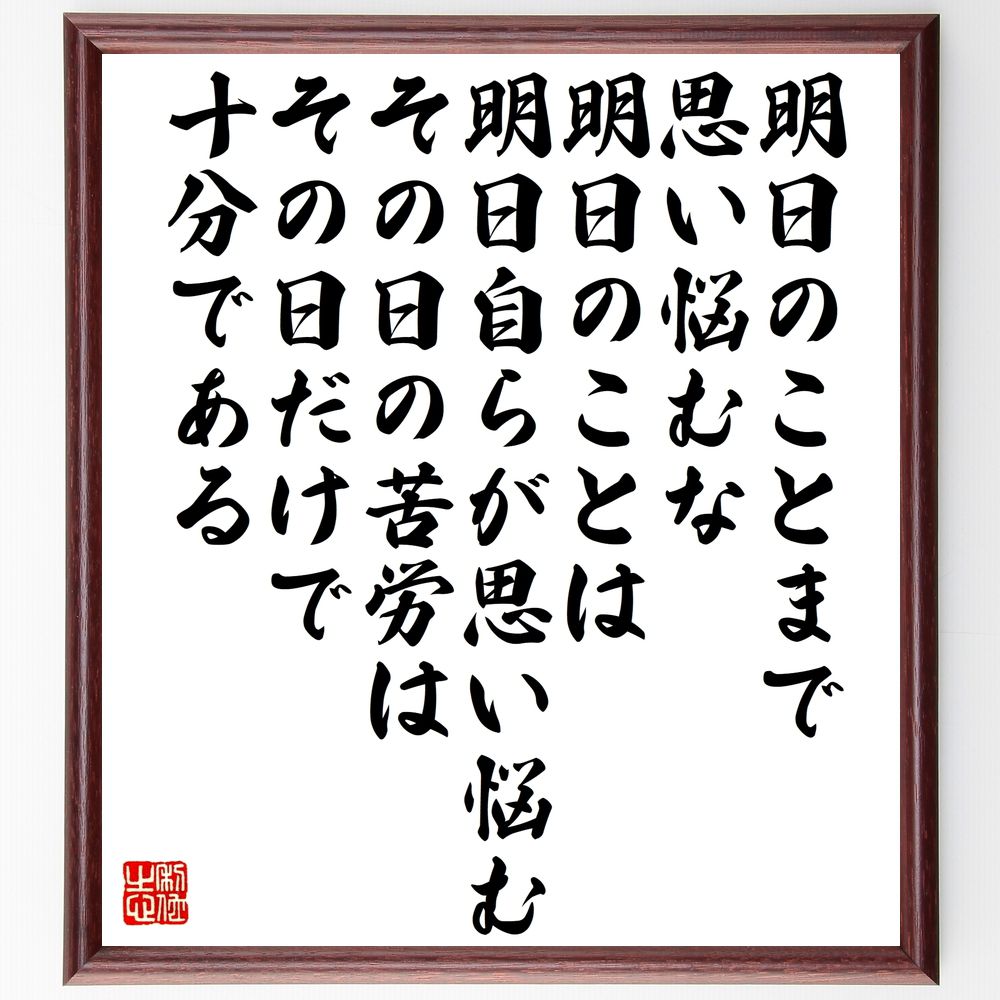 明日のことまで
思い悩むな
明日のことは
明日自らが思い悩む
その日の苦労は
その日だけで
十分である